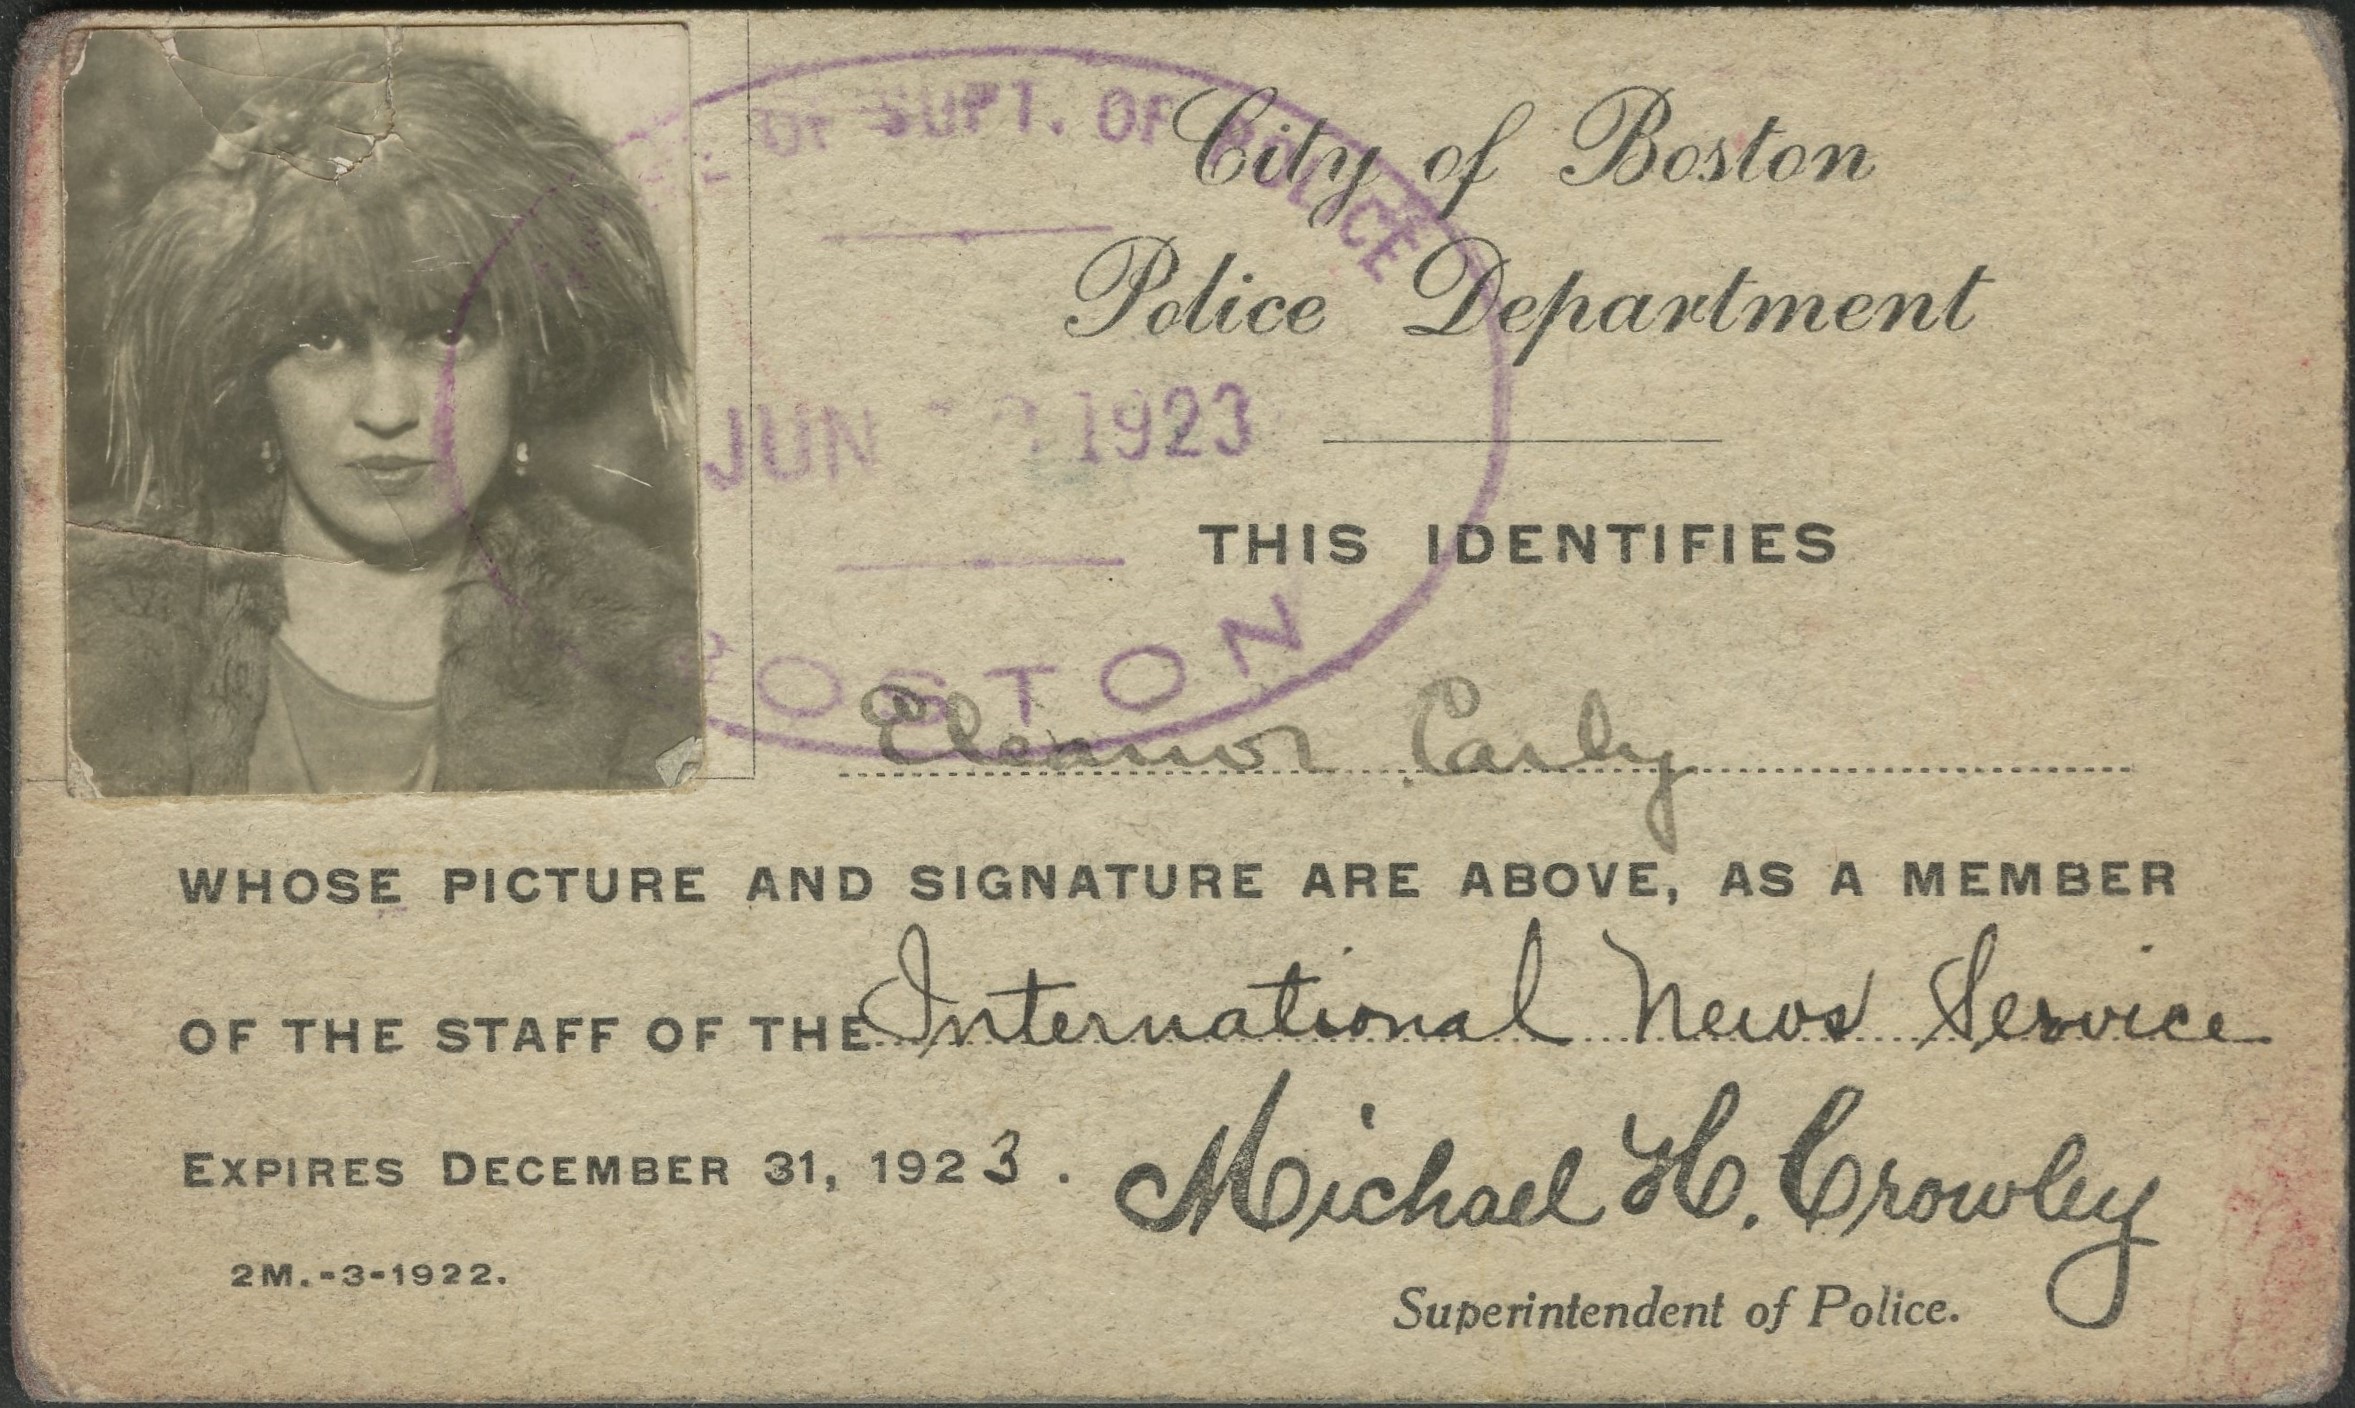 City of Boston
Police Department
OF SUPT. OF POLICE
JUN 1923
BOSTON
THIS IDENTIFIES
Eleanor Early
WHOSE PICTURE AND SIGNATURE ARE ABOVE, AS A MEMBER
OF THE STAFF OF THE International News Service
EXPIRES DECEMBER 31, 1923.
Michael H. Crowley
2M.-3-1922.
Superintendent of Police.